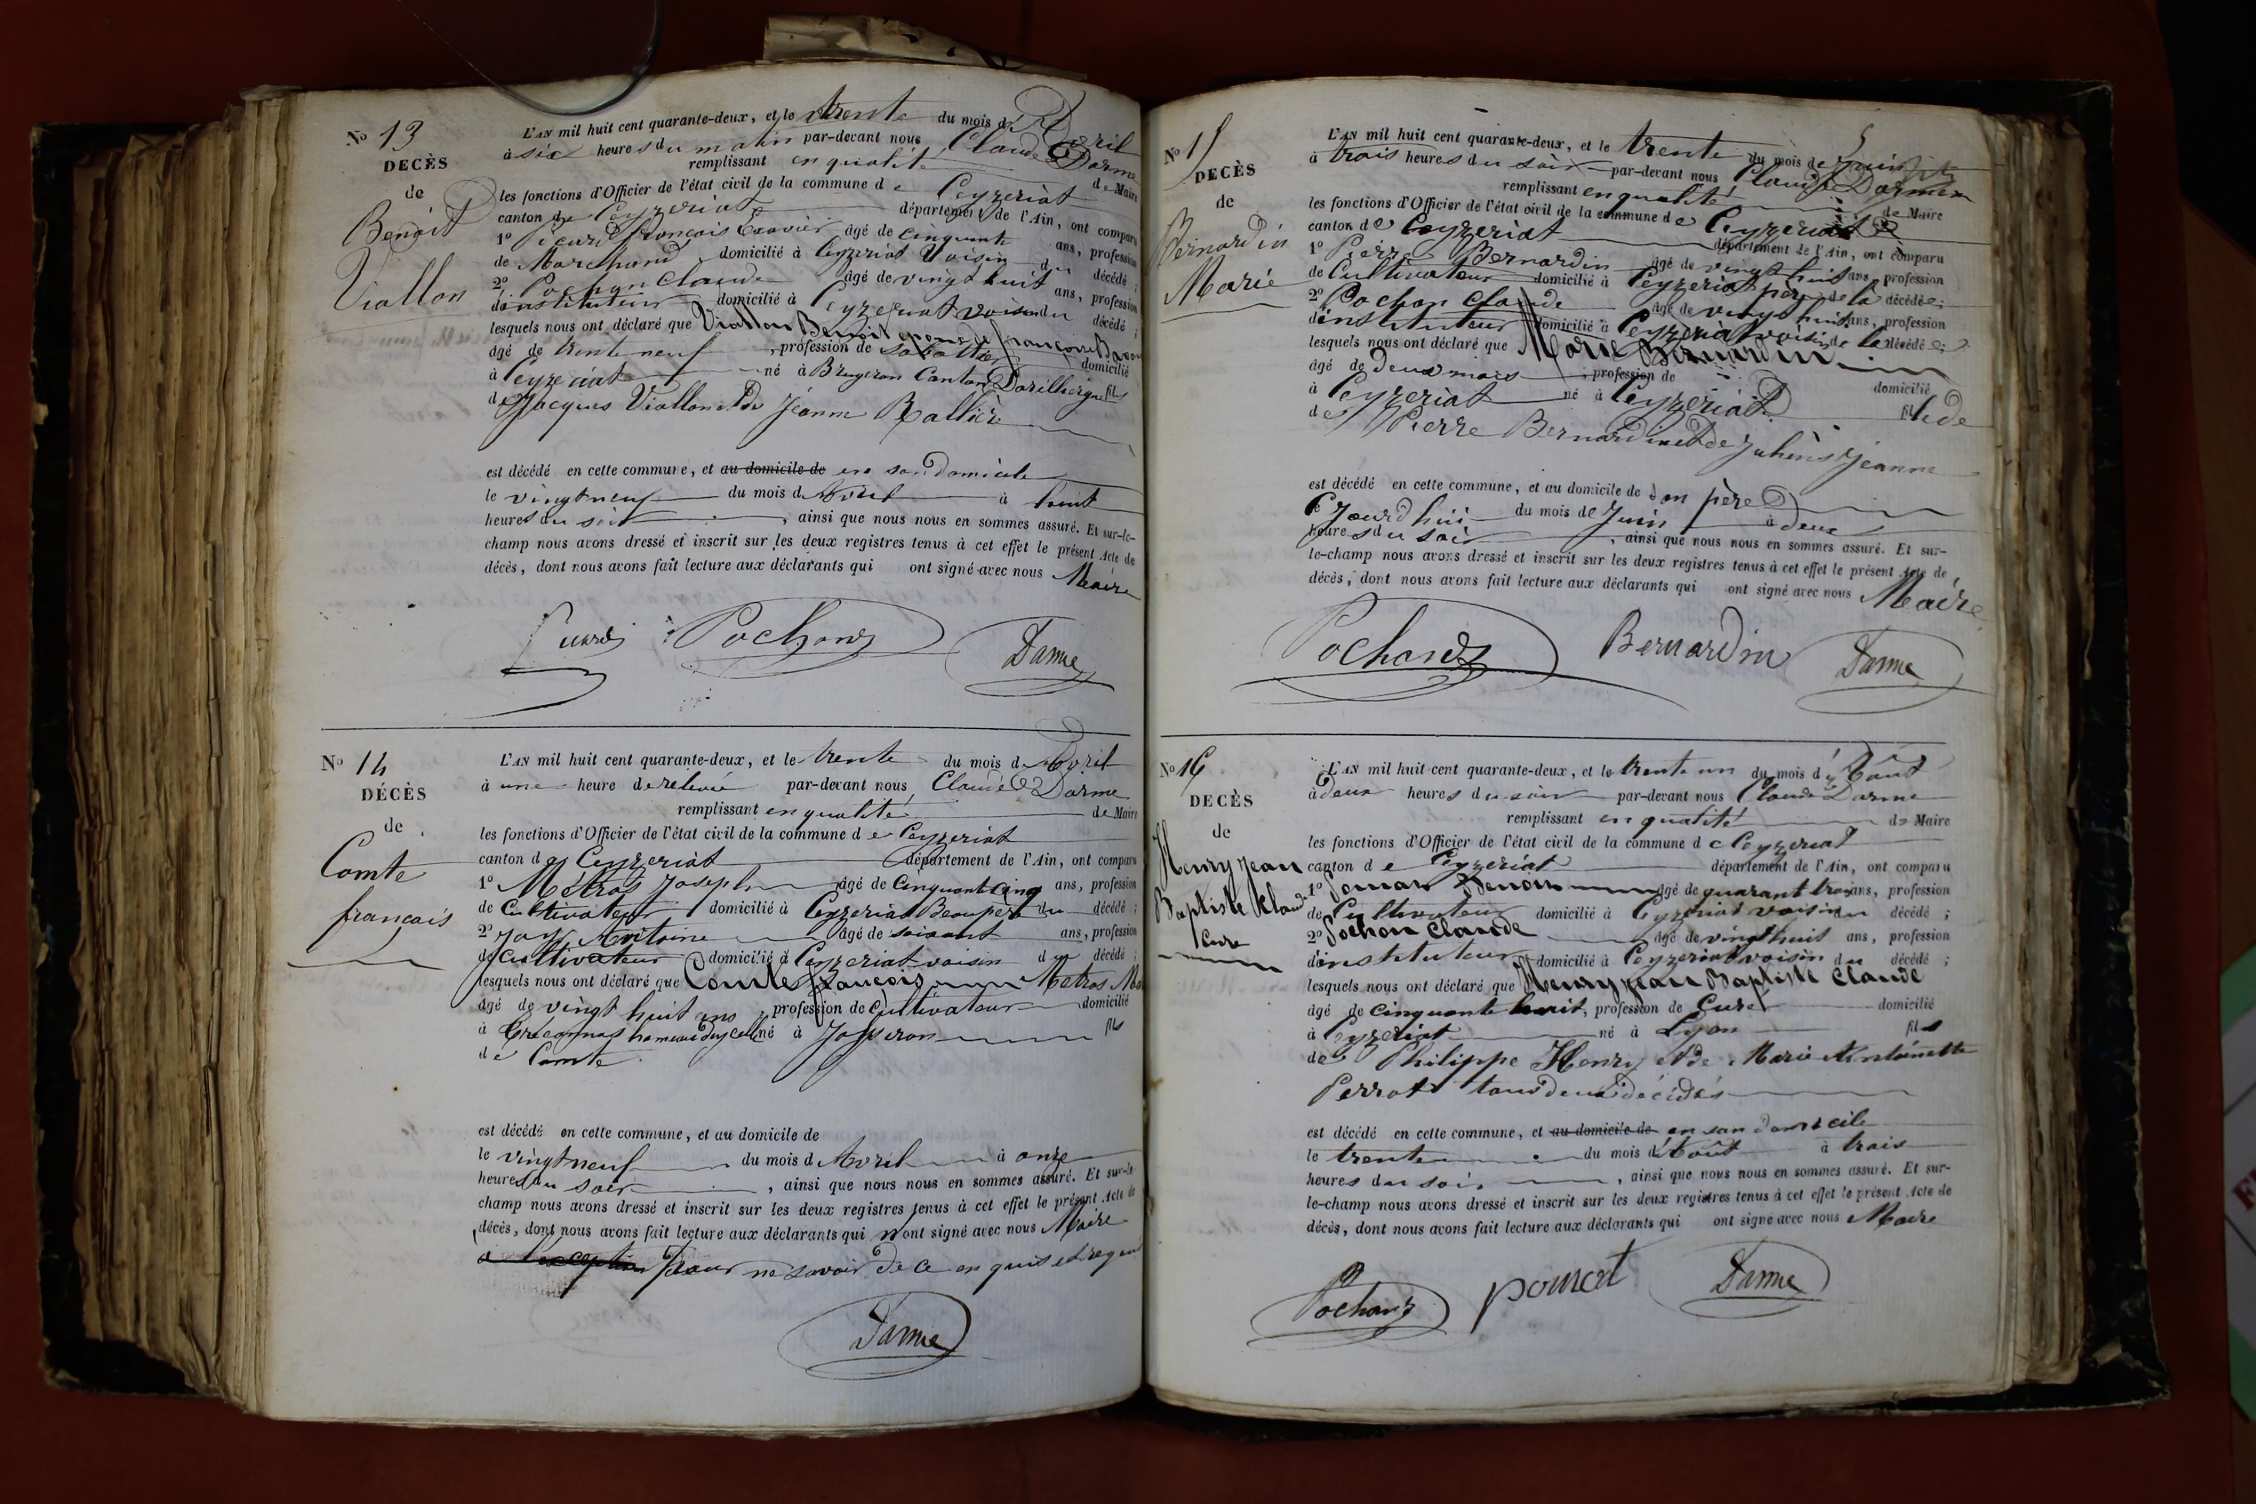 No 13
DECÈS
de
Benoît
Viallon
L'AN mil huit cent quarante-deux, et le trente du mois d'Avril
à six heures du matin par-devant nous Claude Darme
remplissant en qualité de Maire
les fonctions d'Officier de l'état civil de la commune de Ceyzeriat
canton de Ceyzeriat département de l'Ain, ont comparu
1o François Xavier âgé de cinquante ans, profession
de Marchand domicilié à Ceyzeriat Voisin du décédé ;
2o Pochon Claude âgé de vingt huit ans, profession
d'instituteur domicilié à Ceyzeriat voisin du décédé ;
lesquels nous ont déclaré que Viallon Benoit epoux de francoise
âgé de trente neuf , profession de sabottier domicilié
à Ceyzeriat né à Canton fils
de Jacques Viallon et de Jeanne
est décédé en cette commune, et au domicile de en son domicile
le vingt neuf du mois d'Avril à huit
heures du soir , ainsi que nous nous en sommes assuré. Et sur-le-
champ nous avons dressé et inscrit sur les deux registres tenus à cet effet le présent Acte de
décès, dont nous avons fait lecture aux déclarants qui ont signé avec nous Maire
Pochon
Darme
No 14
DÉCÈS
de
Comte
francois
L'AN mil huit cent quarante-deux, et le trente du mois d'Avril
à une heure de relevée par-devant nous Claude Darme
remplissant en qualité de Maire
les fonctions d'Officier de l'état civil de la commune de Ceyzeriat
canton de Ceyzeriat département de l'Ain, ont comparu
1o Métras Joseph âgé de Cinquante cinq ans, profession
de Cultivateur domicilié à Ceyzeriat Beaupère du décédé ;
2o Joly Antoine âgé de soixante ans, profession
de Cultivateur domicilié à Ceyzeriat voisin du décédé ;
lesquels nous ont déclaré que Comte francois Metras
âgé de vingt huit ans , profession de Cultivateur domicilié
à né à Josseron fils
de Comte
est décédé en cette commune, et au domicile de
le vingt neuf du mois d'Avril à onze
heures du soir , ainsi que nous nous en sommes assuré. Et sur-le
champ nous avons dressé et inscrit sur les deux registres tenus à cet effet le présent Acte de
décès, dont nous avons fait lecture aux déclarants qui n'ont signé avec nous Maire
a l'exception pour ne savoir de ce enquis et requis
Darme
No 15
DECÈS
de
Bernardin
Marie
L'AN mil huit cent quarante-deux, et le trente du mois de Juin
à trois heures du soir par-devant nous Claude Darme
remplissant en qualité de Maire
les fonctions d'Officier de l'état civil de la commune de Ceyzeriat
canton de Ceyzeriat département de l'Ain, ont comparu
1o Pierre Bernardin âgé de vingt huit ans, profession
de Cultivateur domicilié à Ceyzeriat père de la décédée ;
2o Pochon Claude âgé de vingt huit ans, profession
d'instituteur domicilié à Ceyzeriat voisin de la décédée ;
lesquels nous ont déclaré que Marie Bernardin
âgé de Deux mois , profession de domicilié
à Ceyzeriat né à Ceyzeriat fille de
de Pierre Bernardin et de Jeanne
est décédé en cette commune, et au domicile de son père
le Jourd'hui du mois de Juin à deux
heures du soir , ainsi que nous nous en sommes assuré. Et sur-
le-champ nous avons dressé et inscrit sur les deux registres tenus à cet effet le présent Acte de
décès, dont nous avons fait lecture aux déclarants qui ont signé avec nous Maire
Pochon
Bernardin
Darme
No 16
DECÈS
de
Henry Jean
Baptiste Claude
Cure
L'AN mil huit cent quarante-deux, et le trente un du mois d'Août
à deux heures du soir par-devant nous Claude Darme
remplissant en qualité de Maire
les fonctions d'Officier de l'état civil de la commune de Ceyzeriat
canton de Ceyzeriat département de l'Ain, ont comparu
1o âgé de quarante trois ans, profession
de Cultivateur domicilié à Ceyzeriat voisin du décédé ;
2o Pochon Claude âgé de vingt huit ans, profession
d'instituteur domicilié à Ceyzeriat voisin du décédé ;
lesquels nous ont déclaré que Henry Jean Baptiste Claude
âgé de cinquante huit, profession de Curé domicilié
à Ceyzeriat né à Lyon fils
de Philippe Henry et de Marie Antoinette
Perrot tous deux décédés
est décédé en cette commune, et au domicile de en son domicile
le trente du mois d'Août à trois
heures du soir , ainsi que nous nous en sommes assuré. Et sur-
le-champ nous avons dressé et inscrit sur les deux registres tenus à cet effet le présent Acte de
décès, dont nous avons fait lecture aux déclarants qui ont signé avec nous Maire
Pochon
Darme